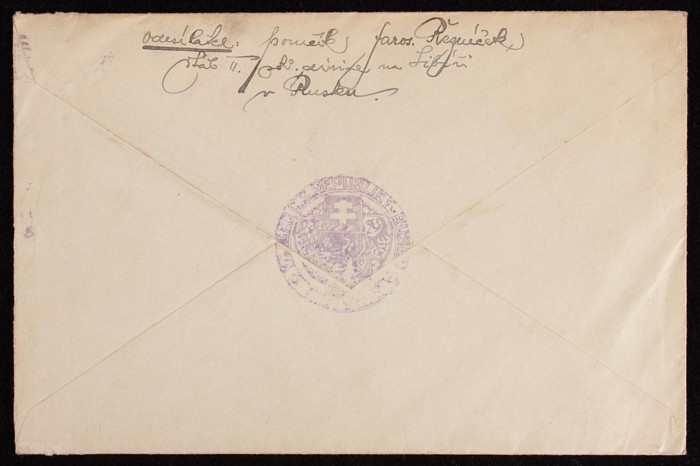 odesílatel: poručík Jaros. Řezníček,
štáb II. stř. divize na Sibíři
v Rusku.
REPUBLIKY